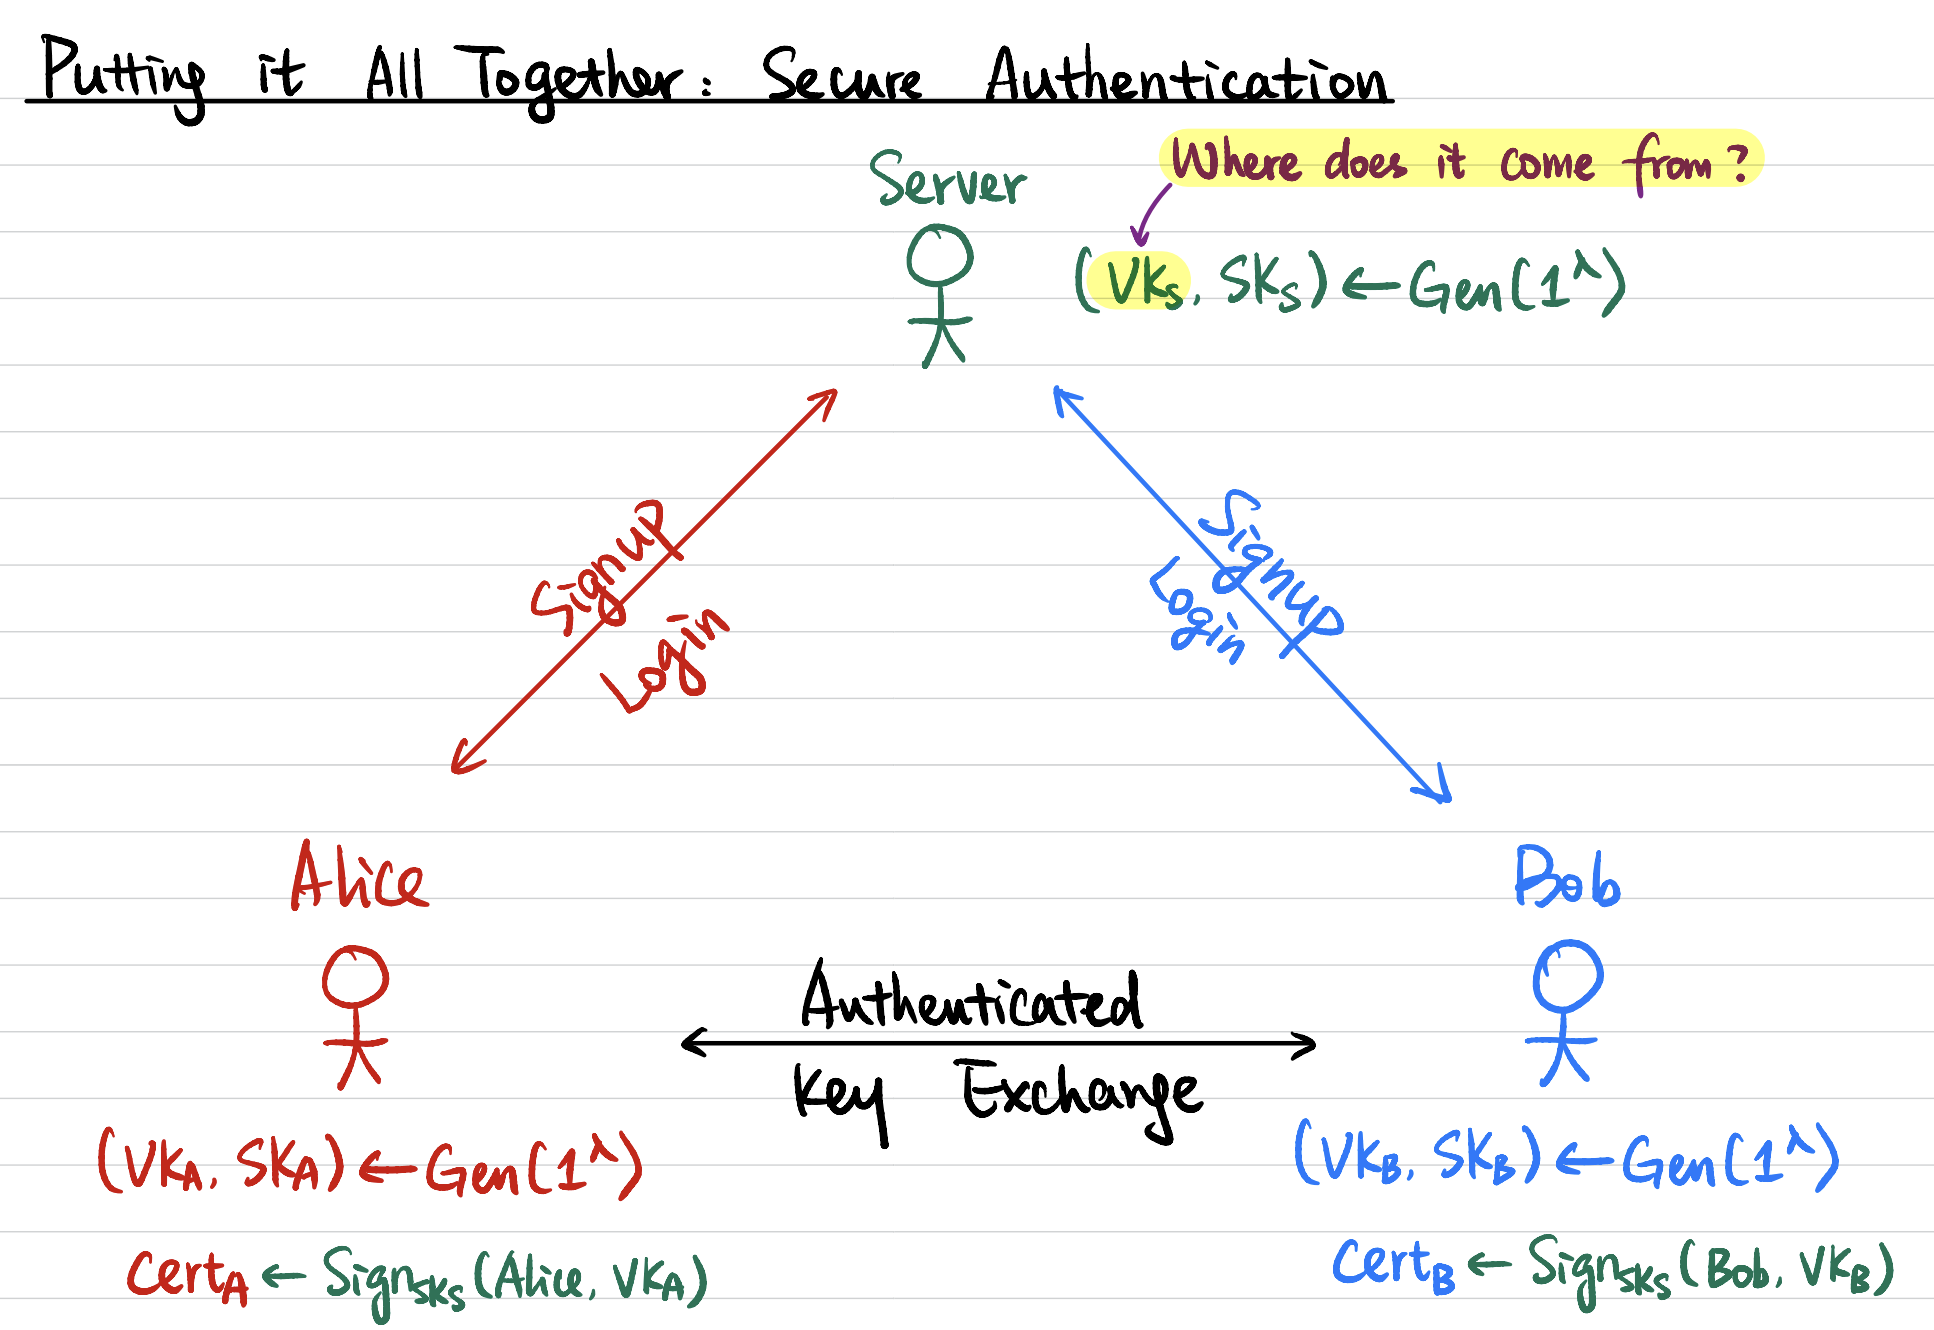 Putting it All Together: Secure Authentication
Where does it come from?
Server
(VKS, SKS) ← Gen(1^λ)
Signup
Login
Signup
Login
Alice
Bob
Authenticated
Key Exchange
(VKA, SKA) ← Gen(1^λ)
(VKB, SKB) ← Gen(1^λ)
CertA ← SignSKS(Alice, VKA)
CertB ← SignSKS(Bob, VKB)